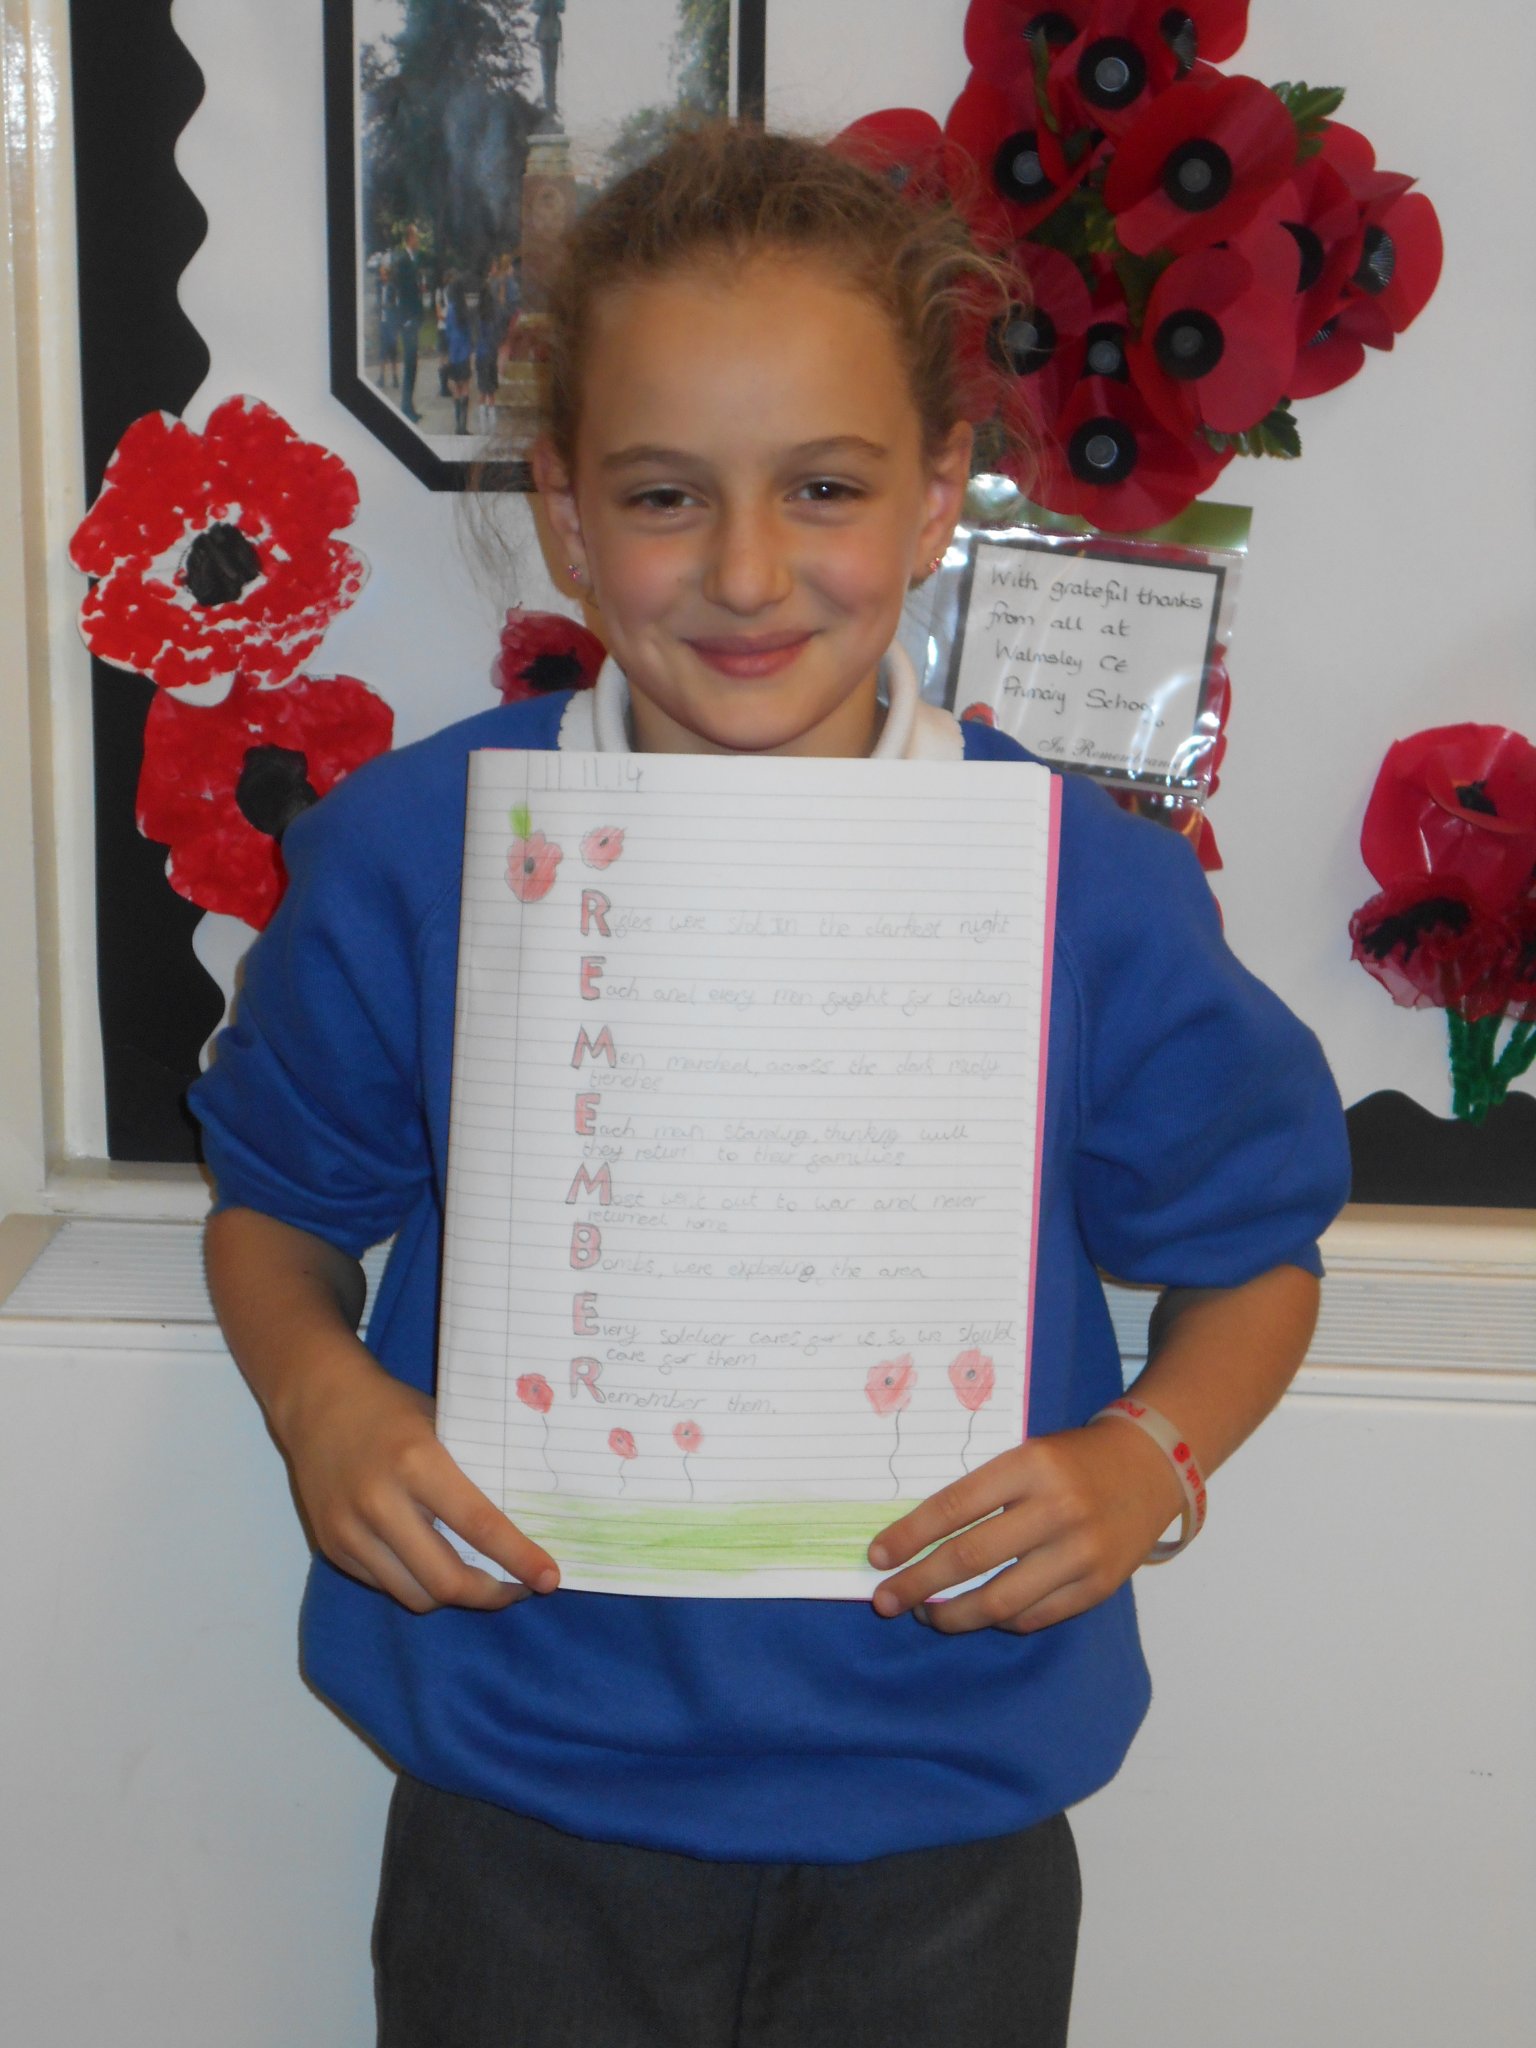 With grateful thanks
from all at
Walmsley CE
Primary School
In Remembrance
11.11.14
Rifles were shot, in the darkest night
Each and every man fought for Britian
Men marched, across the dark
trenches
Each man standing, thinking will
they return to their families
Most went out to war and never
returned home
Bombs, were exploding, the area
Every soldier cares for us, so we should
care for them
Remember them.